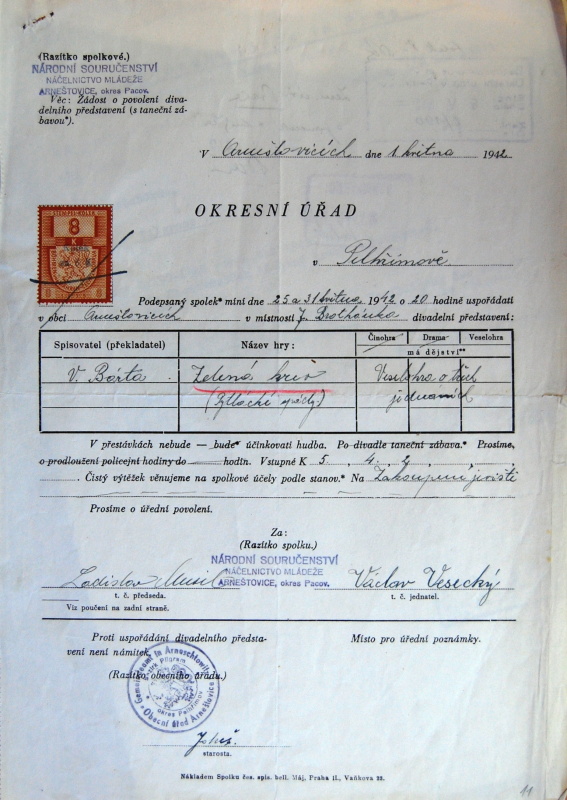 (Razítko spolkové.)
NÁRODNÍ SOURUČENSTVÍ
NÁČELNICTVO MLÁDEŽE
ARNEŠTOVICE, okres Pacov.
Věc: Žádost o povolení diva-
delního představení (s taneční zá-
bavou*).
V Arneštovicích dne 1 května 1942
OKRESNÍ ÚŘAD
8
K
v Pelhřimově
Podepsaný spolek* míní dne 25 a 31 května 1942 o 20 hodině uspořádati
v obci Arneštovicích v místnosti J. divadelní představení:
Spisovatel (překladatel)
Název hry:
Činohra Drama Veselohra
má dějství**
V. Bárta
Zelená krev
Veselohra o třech
jednáních
V přestávkách nebude — bude* účinkovati hudba. Po divadle taneční zábava.* Prosíme,
o prodloužení policejní hodiny do hodin. Vstupné K 5, 4, 2,
Čistý výtěžek věnujeme na spolkové účely podle stanov.* Na Zakoupení jeviště
Prosíme o úřední povolení.
Za:
(Razítko spolku.)
NÁRODNÍ SOURUČENSTVÍ
NÁČELNICTVO MLÁDEŽE
ARNEŠTOVICE, okres Pacov.
Ladislav Musil
Václav Vesecký
t. č. předseda.
t. č. jednatel.
Viz poučení na zadní straně.
Proti uspořádání divadelního předsta-
vení není námitek.
Místo pro úřední poznámky.
(Razítko obecního úřadu.)
Gemeindeamt in Arneschtowitz
Bezirk Pilgram
okres Pelhřimov
Obecní úřad Arneštovice
starosta.
Nákladem Spolku čes. spis. bell. Máj, Praha II., Vaňkova 20.
11